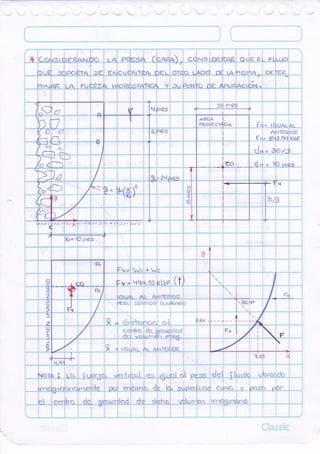 * CONSIDERANDO LA PRESA (CARA), CONSIDERAR QUE EL FLUJO
QUE SOPORTA SE ENCUENTRA DEL OTRO LADO DE LA MISMA, DETER
MINAR LA FUERZA HIDROSTATICA Y SU PUNTO DE APLICACIÓN.
4 pies
A
6 pies
B
30 pies
AREA
PROYECTADA
CG
FH
h/3
FH = IGUAL AL
ANTERIOR
dH = 30/3
dH = 10 pies
C
X0 = 12 pies
Fv = W1 + W2
(↑)
IGUAL AL ANTERIOR
PERO SENTIDO CONTRARIO
x̄ = distancia al
centro de gravedad
del volumen imag.
x̄ = IGUAL AL ANTERIOR
VOLUMEN IMAGINARIO
CG
A1
A2
Fv
4.93
FH
Fv
F
X
NOTA: La fuerza vertical es igual al peso del fluido ubicado
imaginariamente por encima de la superficie curva y pasa por
el centro de gravedad de dicho volumen imaginario
Classic